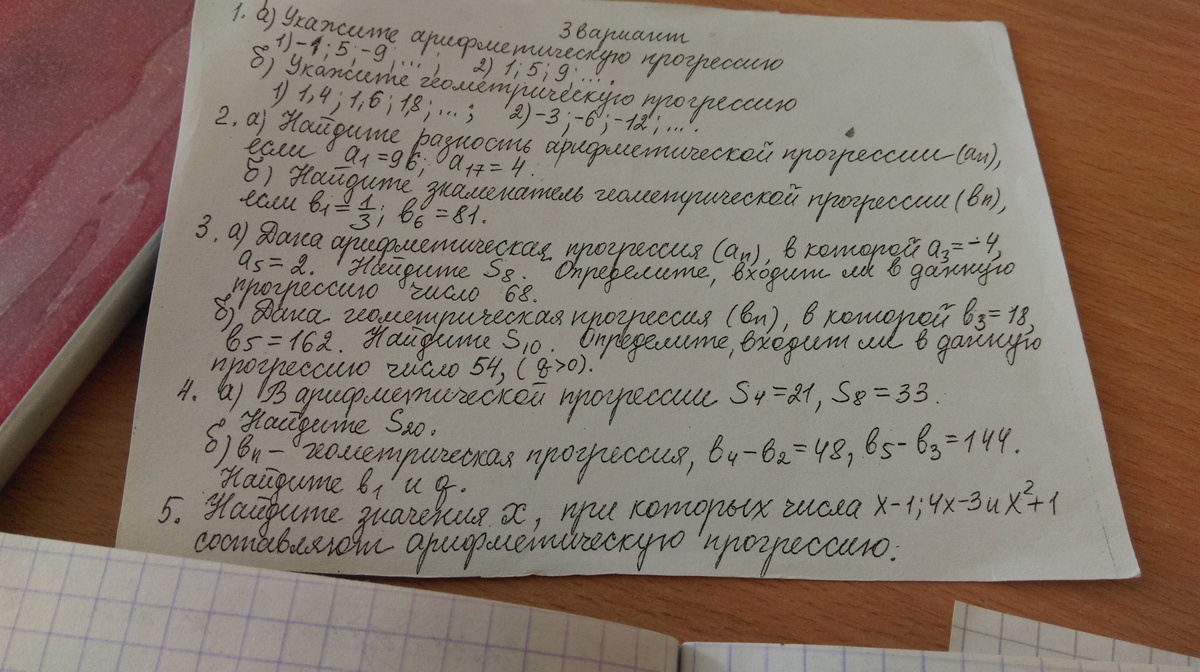 3 вариант
1. а) Укажите арифметическую прогрессию
1) -1; 5; -9; ...; 2) 1; 5; 9; ....
б) Укажите геометрическую прогрессию
1) 1,4; 1,6; 1,8; ...; 2) -3; -6; -12; ....
2. а) Найдите разность арифметической прогрессии (an),
если a1 = 96; a17 = 4.
б) Найдите знаменатель геометрической прогрессии (вn),
если в1 = 1/3; в6 = 81.
3. а) Дана арифметическая прогрессия (an), в которой a3 = -4,
a5 = 2. Найдите S8. Определите, входит ли в данную
прогрессию число 68.
б) Дана геометрическая прогрессия (вn), в которой в3 = 18,
в5 = 162. Найдите S10. Определите, входит ли в данную
прогрессию число 54, (q>0).
4. а) В арифметической прогрессии S4 = 21, S8 = 33.
Найдите S20.
б) вn – геометрическая прогрессия, в4 - в2 = 48, в5 - в3 = 144.
Найдите в1 и q.
5. Найдите значения x, при которых числа x-1; 4x-3 и x²+1
составляют арифметическую прогрессию.